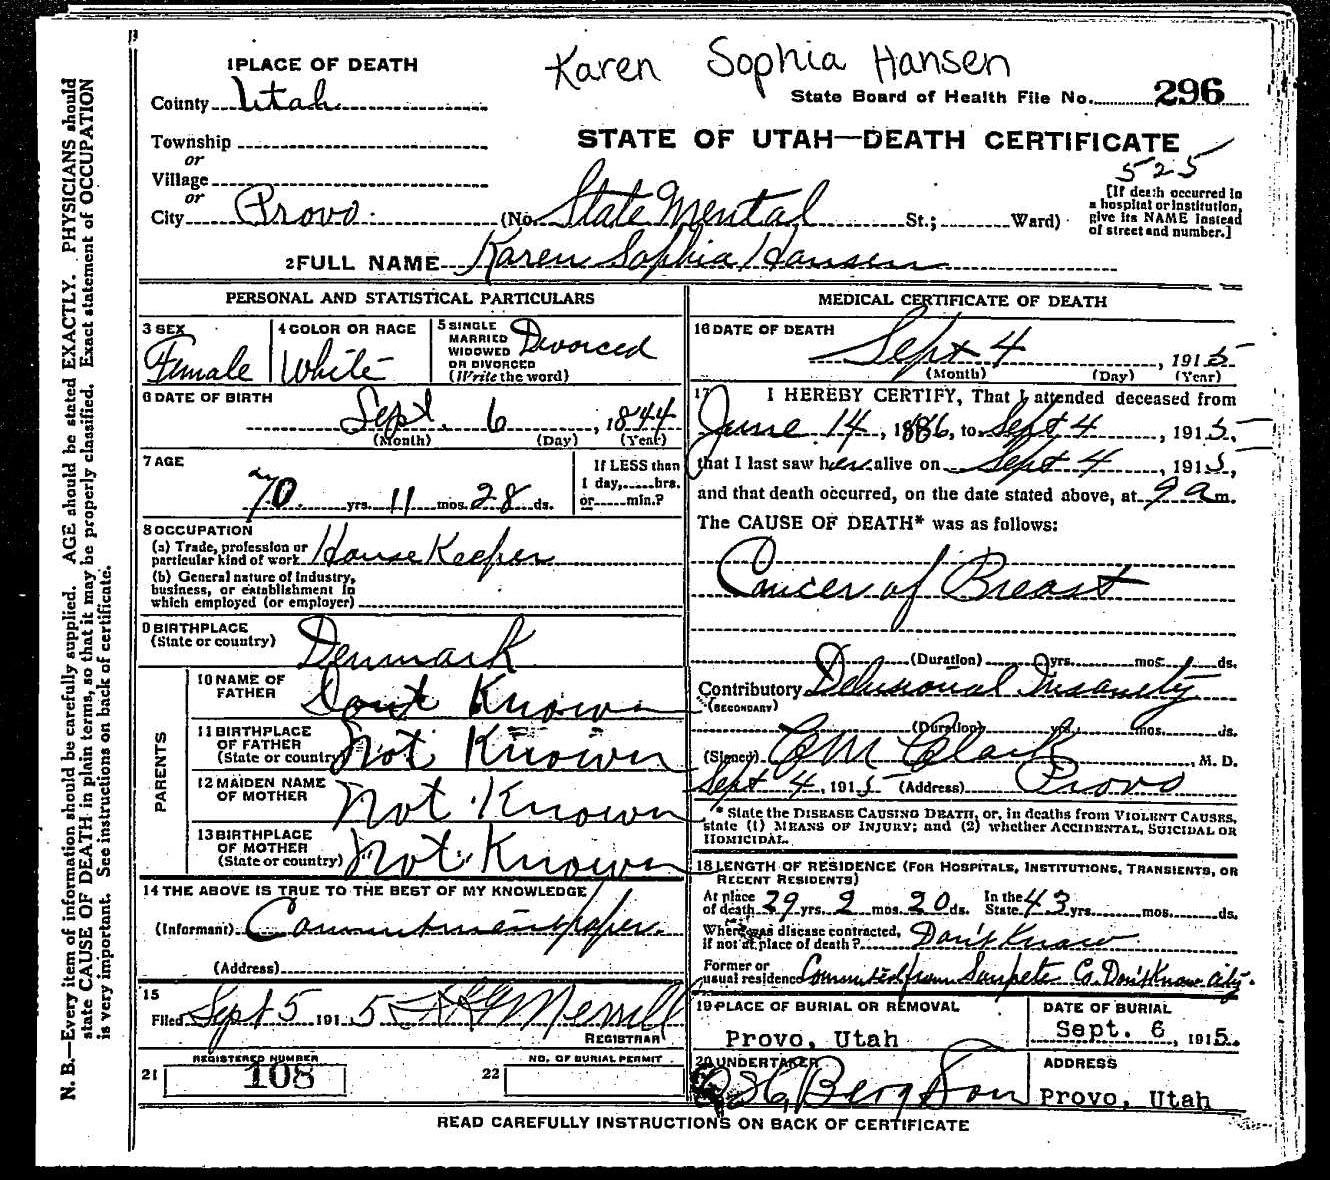 Karen Sophia Hansen
1 PLACE OF DEATH
County Utah
State Board of Health File No. 296
Township
or
Village
or
City Provo
STATE OF UTAH—DEATH CERTIFICATE
525
(No. State Mental St.; Ward)
[If death occurred in
a hospital or institution,
give its NAME instead
of street and number.]
2 FULL NAME Karen Sophia Hansen
PERSONAL AND STATISTICAL PARTICULARS
3 SEX
Female
4 COLOR OR RACE
White
5 SINGLE
MARRIED
WIDOWED
OR DIVORCED
(Write the word)
Divorced
6 DATE OF BIRTH
Sept. 6, 1844
(Month) (Day) (Year)
7 AGE
70 yrs. 11 mos. 28 ds.
If LESS than
1 day, hrs.
or min.?
8 OCCUPATION
(a) Trade, profession or
particular kind of work House Keeper
(b) General nature of industry,
business, or establishment in
which employed (or employer)
9 BIRTHPLACE
(State or country) Denmark
PARENTS
10 NAME OF
FATHER Dont Known
11 BIRTHPLACE
OF FATHER
(State or country) Not Known
12 MAIDEN NAME
OF MOTHER Not Known
13 BIRTHPLACE
OF MOTHER
(State or country) Not Known
14 THE ABOVE IS TRUE TO THE BEST OF MY KNOWLEDGE
(Informant) Commitment paper.
(Address)
15
Filed Sept 5 1915 Merrill
REGISTRAR
21 REGISTERED NUMBER
108
22 NO. OF BURIAL PERMIT
MEDICAL CERTIFICATE OF DEATH
16 DATE OF DEATH
Sept 4, 1915
(Month) (Day) (Year)
17 I HEREBY CERTIFY, That I attended deceased from
June 14, 1886, to Sept 4, 1915,
that I last saw her alive on Sept 4, 1915,
and that death occurred, on the date stated above, at 9 a m.
The CAUSE OF DEATH* was as follows:
Cancer of Breast
(Duration) yrs. mos. ds.
Contributory Delusional Insanity
(SECONDARY)
(Duration) yrs. mos. ds.
(Signed) Clark, M. D.
Sept 4, 1915 (Address) Provo
* State the DISEASE CAUSING DEATH, or, in deaths from VIOLENT CAUSES,
state (1) MEANS OF INJURY; and (2) whether ACCIDENTAL, SUICIDAL OR
HOMICIDAL.
18 LENGTH OF RESIDENCE (FOR HOSPITALS, INSTITUTIONS, TRANSIENTS, OR
RECENT RESIDENTS)
At place
of death 29 yrs. 2 mos. 20 ds. In the
State 43 yrs. mos. ds.
Where was disease contracted,
if not at place of death? Don't Know
Former or
usual residence Committed from Sanpete Co. Don't Know City.
19 PLACE OF BURIAL OR REMOVAL
Provo, Utah
DATE OF BURIAL
Sept. 6, 1915.
20 UNDERTAKER
Berg & Son
ADDRESS
Provo, Utah
READ CAREFULLY INSTRUCTIONS ON BACK OF CERTIFICATE
N. B.—Every item of information should be carefully supplied. AGE should be stated EXACTLY. PHYSICIANS should
state CAUSE OF DEATH in plain terms, so that it may be properly classified. Exact statement of OCCUPATION
is very important. See instructions on back of certificate.